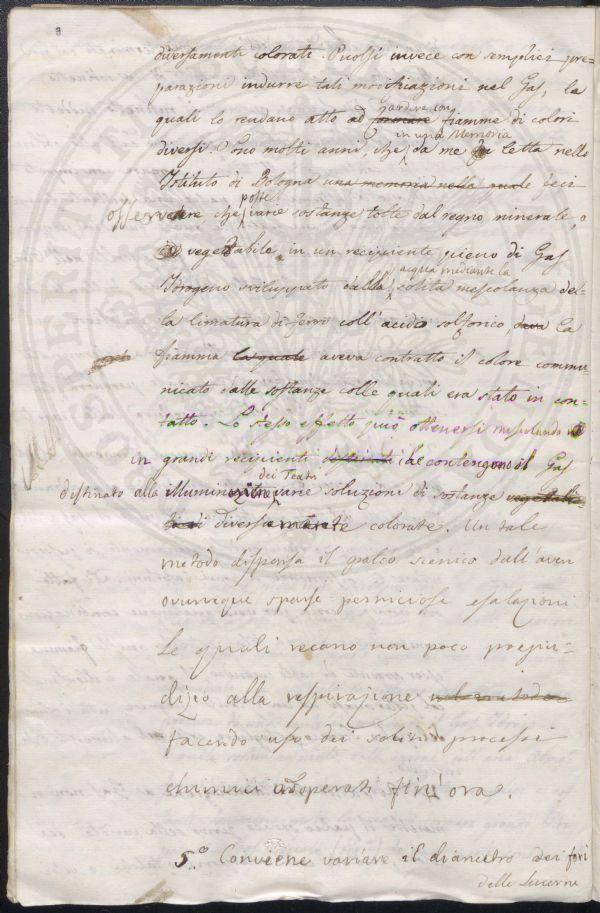 diversamenti colorati. Puossi invece con semplici pre=
parazioni indurre tali modificazioni nel Gas, la
quali lo rendano atto ad formare ardere con fiamme di colori
diversi Sono molti anni, che in una Memoria da me letta nello
Istituto di Bologna una memoria nella quale feci
osservare, che poste varie sostanze tolte dal regno minerale, o
vegetabile in un recipiente pieno di Gas
Idrogeno sviluppato dalla acqua mediante la solita mescolanza del=
la limatura di ferro coll'acido solforico la
fiamma la quale aveva contratto il colore commu=
nicato dalle sostanze colle quali era stato in con=
tatto. Lo stesso effetto può ottenersi mescolando
in grandi recipienti che contengono il Gas
destinato alla illuminazione dei Teatri varie soluzioni di sostanze vegetali
diversamente colorate. Un tale
metodo dispensa il palco scenico dall'aver
ovunque sparse perniciose esalazioni
le quali recano non poco pregiu=
dizio alla respirazione
facendo uso dei soliti processi
chimici adoperati fin'ora.
5.o Conviene variare il diametro dei fori
delle lucerne